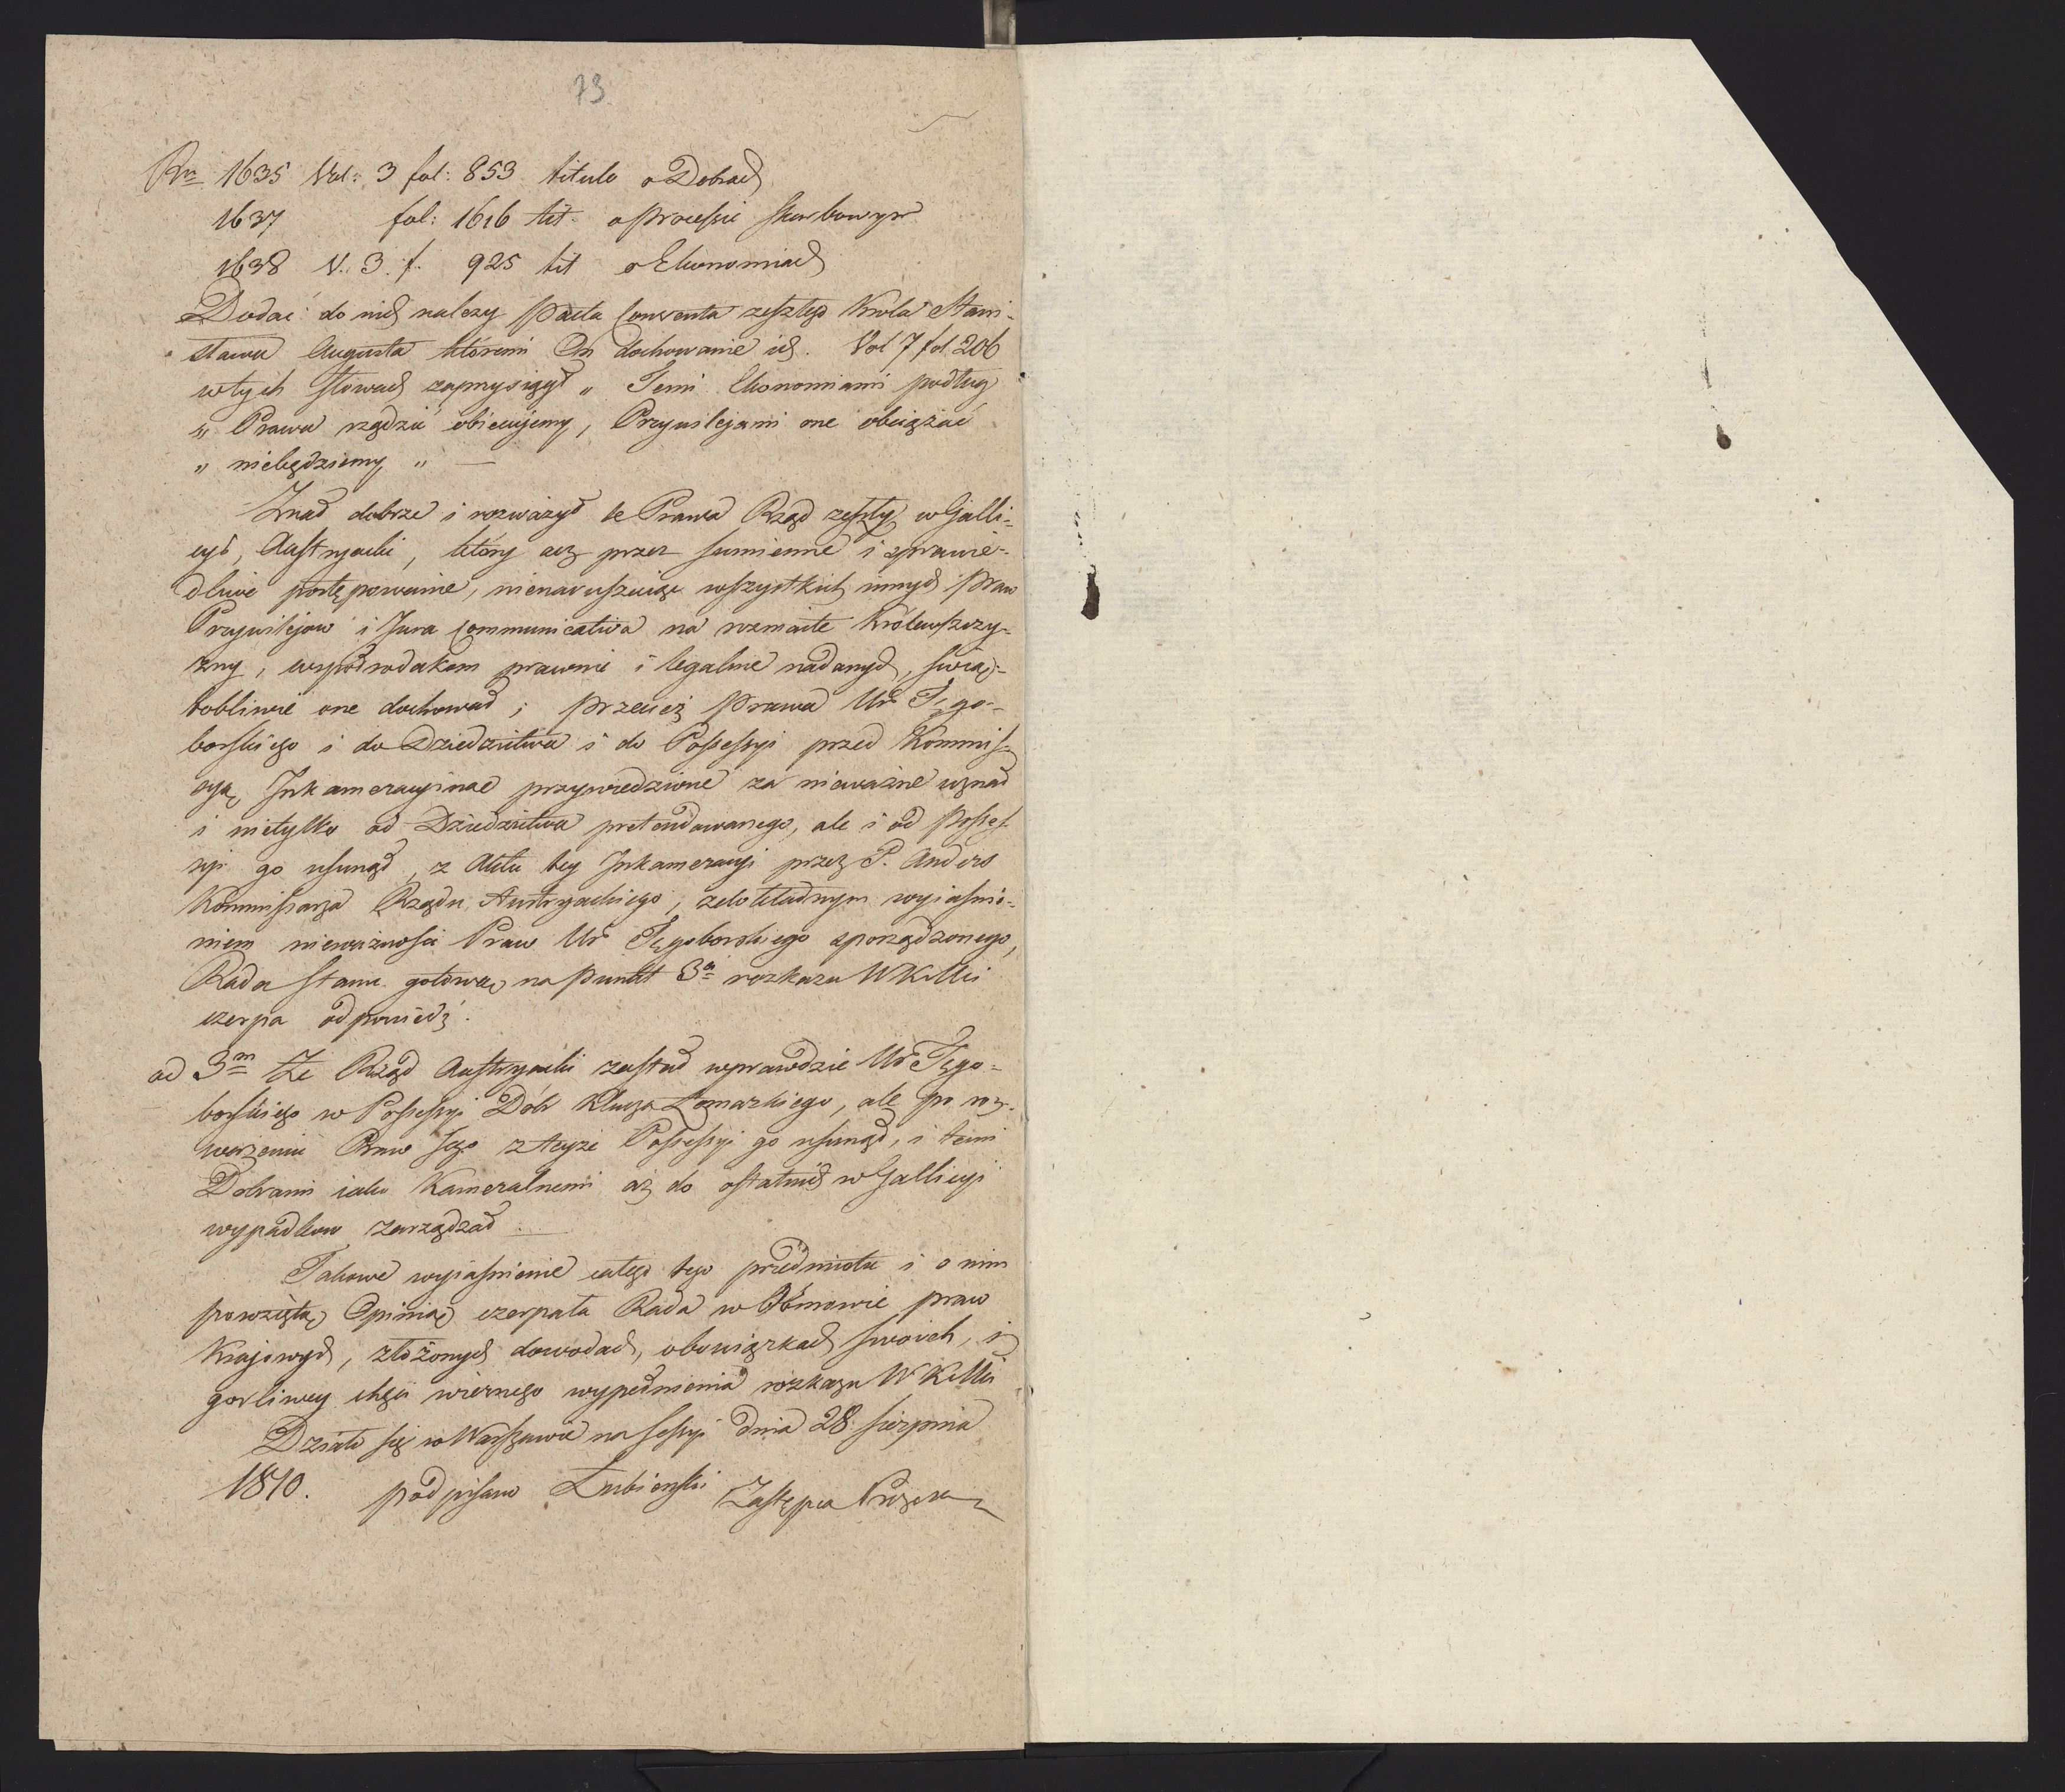 73.
Rn 1635 Vol: 3 fol: 853 titulo o Dobrach
1637 fol: 1616 tit. o processie skarbowym
1638 V. 3. f. 925 tit o Ekonomiach
Dodać do nich należy Pacta Conventa zeszłego Krola Stani-
sława Augusta któremi On dochowanie ich. Vol 7 fol 206
w tych słowach zaprzysiągł „ Temi Ekonomiami podług
„ Prawa rządzić obiecujemy, Przywilejami one obciążać
„ niebędziemy „ —
Znał dobrze i rozważył te Prawa Rząd zeszły w Galli-
cyi, Austryacki, który acz przez sumienne i sprawie-
dliwe postępowanie, nienaruszaiąc wszystkich innych praw
Przywilejow i Jura communicativa na rozmaite Królewszczy-
zny, współrodakom prawnie i legalnie nadanych, świą-
tobliwie one dochował; przecież prawa Ur Tęgo-
borskiego i do Dziedzictwa i do Possessyi przed Kommis-
syą Inkameracyinae przywiedzione za nieważne uznał
i nietylko od Dziedzictwa pretendowanego, ale i od Posses-
syi go usunął, z Aktu tey Inkameracyi przez P. Anders
Kommissarza Rządu Austryackiego, z dokładnym wyiaśnie-
niem nieważności Praw Ur Tęgoborskiego sporządzonego,
Rada Stanu gotową na punkt 3ci rozkazu WKMci
czerpa odpowiedź.
ad 3m Że Rząd Austryacki zastał wprawdzie Ur Tęgo-
borskiego w Possessyi Dóbr Klucza Łomazkiego, ale po roz-
ważeniu Praw Jego z teyże Possessyi go usunął, i temi
Dobrami iako Kameralnemi aż do ostatnich w Gallicyi
wypadkow zarządzał. —
Takowe wyiaśnienie całego tego przedmiotu i o nim
powziętą Opinią czerpała Rada w Osnowie praw
Krajowych, złożonych dowodach, obowiązkach swoich, i
gorliwey chęci wiernego wypełnienia rozkazu WKMci
Działo się w Warszawie na Sessyi dnia 28 Sierpnia
1810. podpisano Łubienski Zastępca Prezesa